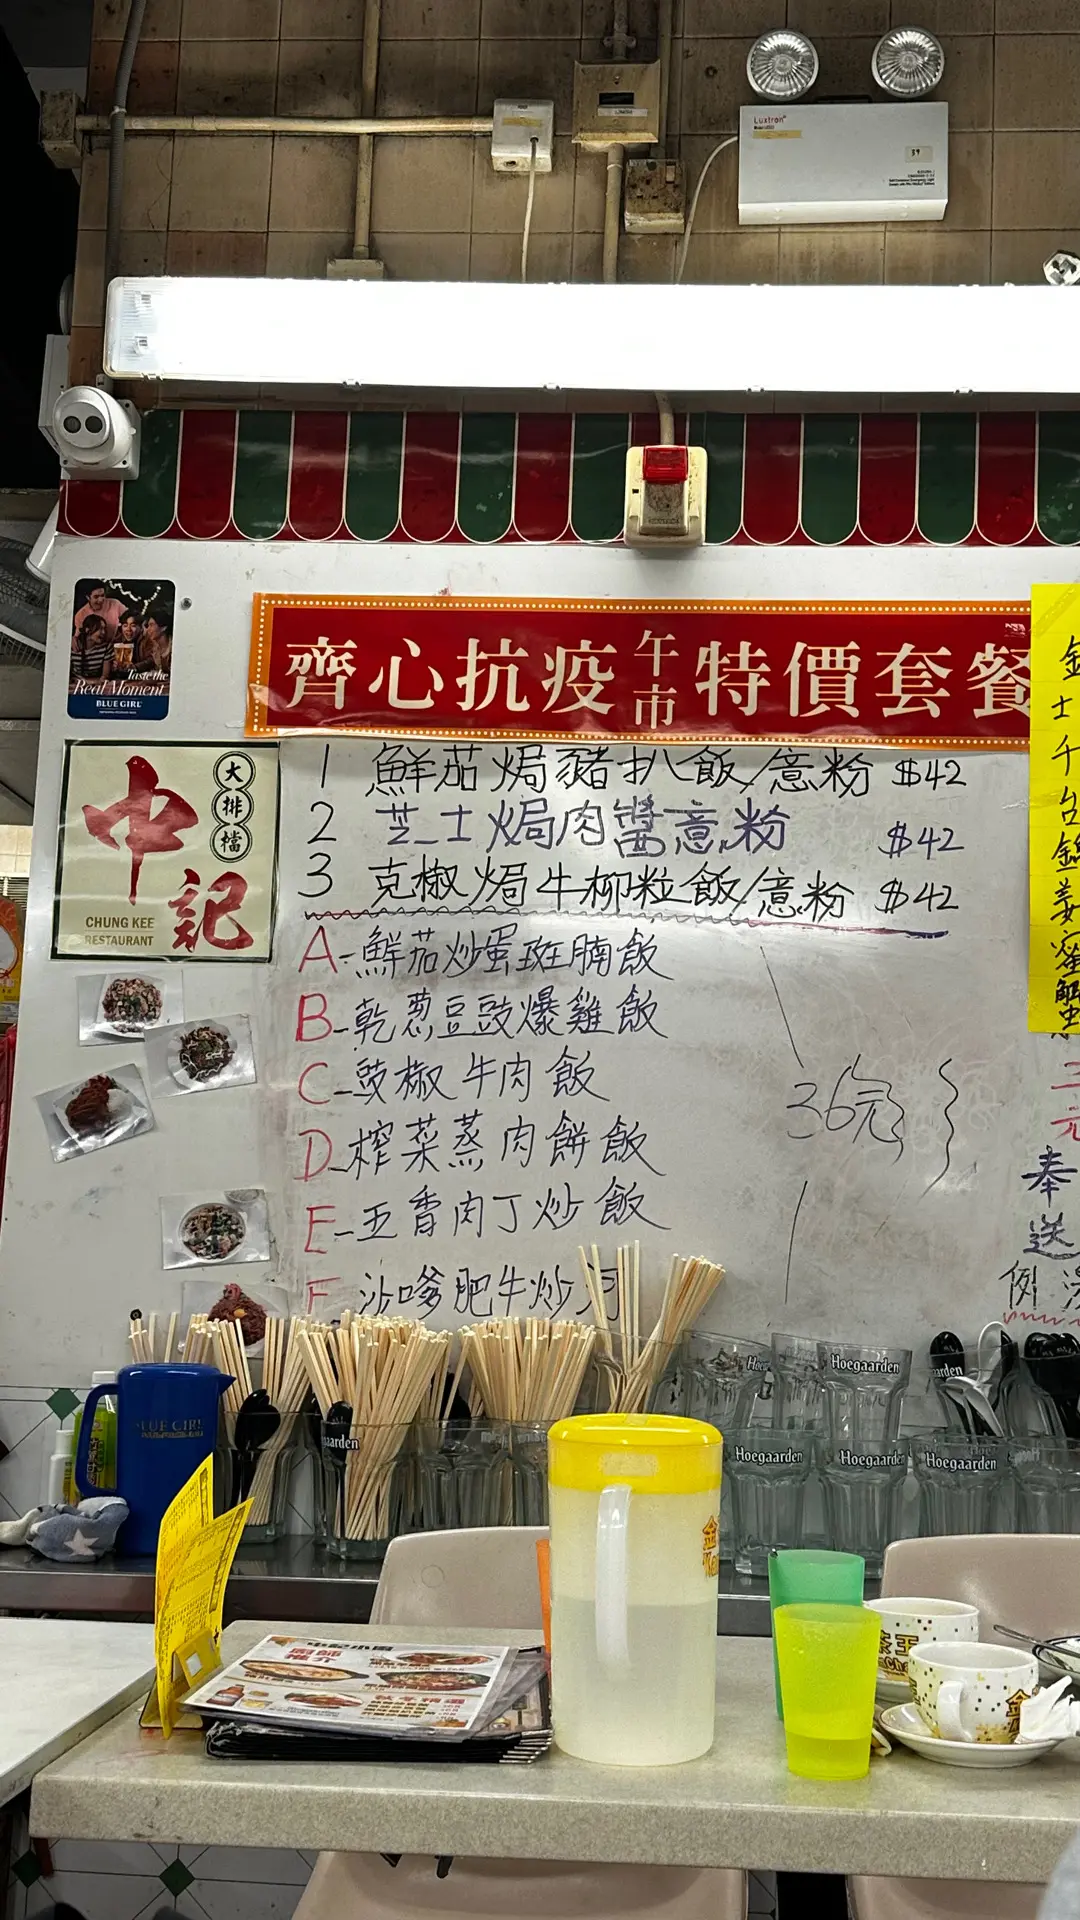 Luxtron
39
Taste the
Real Moment
BLUE GIRL
齊心抗疫午市特價套餐
中記
大排檔
CHUNG KEE
RESTAURANT
1 鮮茄焗豬扒飯/意粉 $42
2 芝士焗肉醬意粉 $42
3 克椒焗牛柳粒飯/意粉 $42
A-鮮茄炒蛋斑腩飯
B-乾葱豆豉爆雞飯
C-豉椒牛肉飯
D-榨菜蒸肉餅飯
E-五香肉丁炒飯
F-沙嗲肥牛炒河
36元
士
千
台
錦
姜
蜜
蟹
二
元
奉
送
例湯
BLUE GIRL
Hoegaarden
Hoegaarden
Hoegaarden
Hoegaarden
中記小廚
廚師
推介
茶王
金